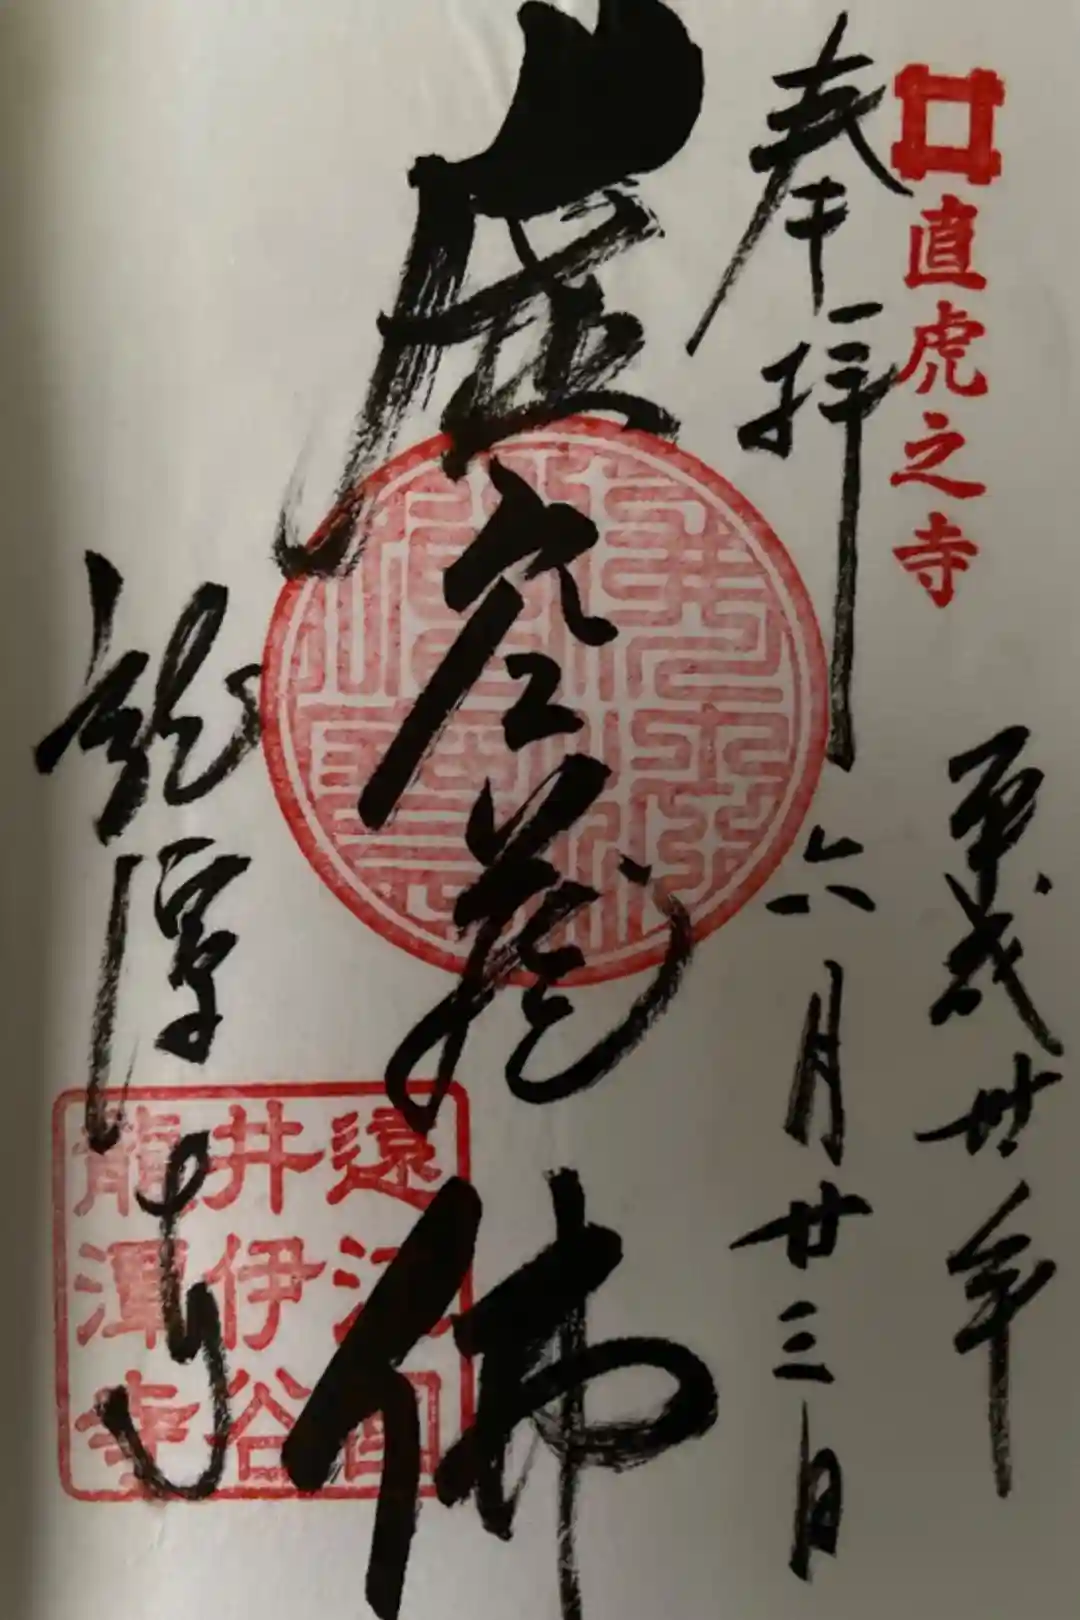 直虎之寺
平成卅年
奉拝 六月廿三日
虚空蔵佛
龍潭寺
遠江国
井伊谷
龍潭寺